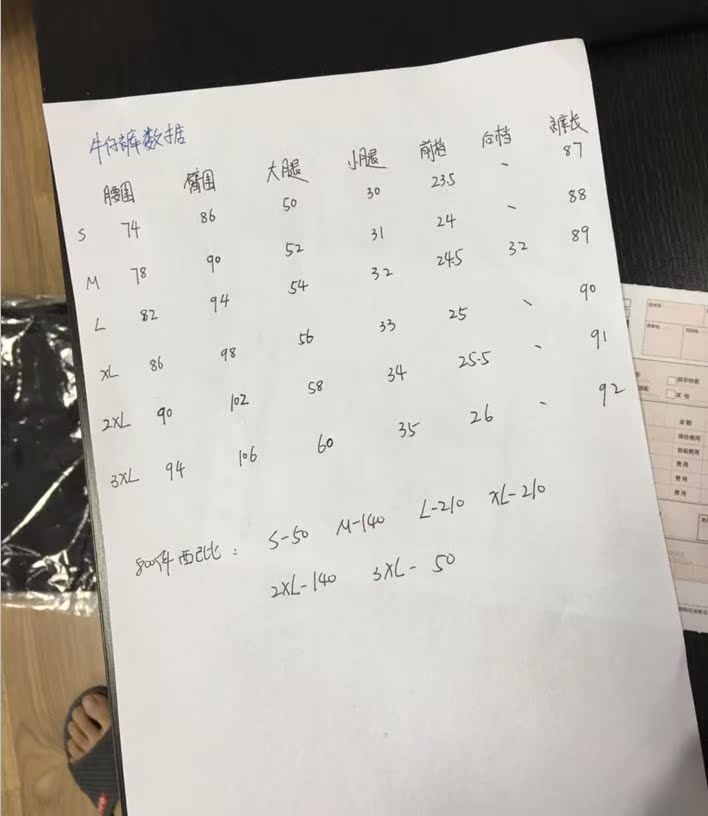 牛仔裤数据
腰围 臀围 大腿 小腿 前档 后档 裤长
S 74 86 50 30 23.5 、 87
M 78 90 52 31 24 、 88
L 82 94 54 32 24.5 32 89
XL 86 98 56 33 25 、 90
2XL 90 102 58 34 25.5 、 91
3XL 94 106 60 35 26 、 92
800件配比: S-50 M-140 L-210 XL-210
2XL-140 3XL-50
金额
保价费用
包装费用
费用
费用
费用
其他